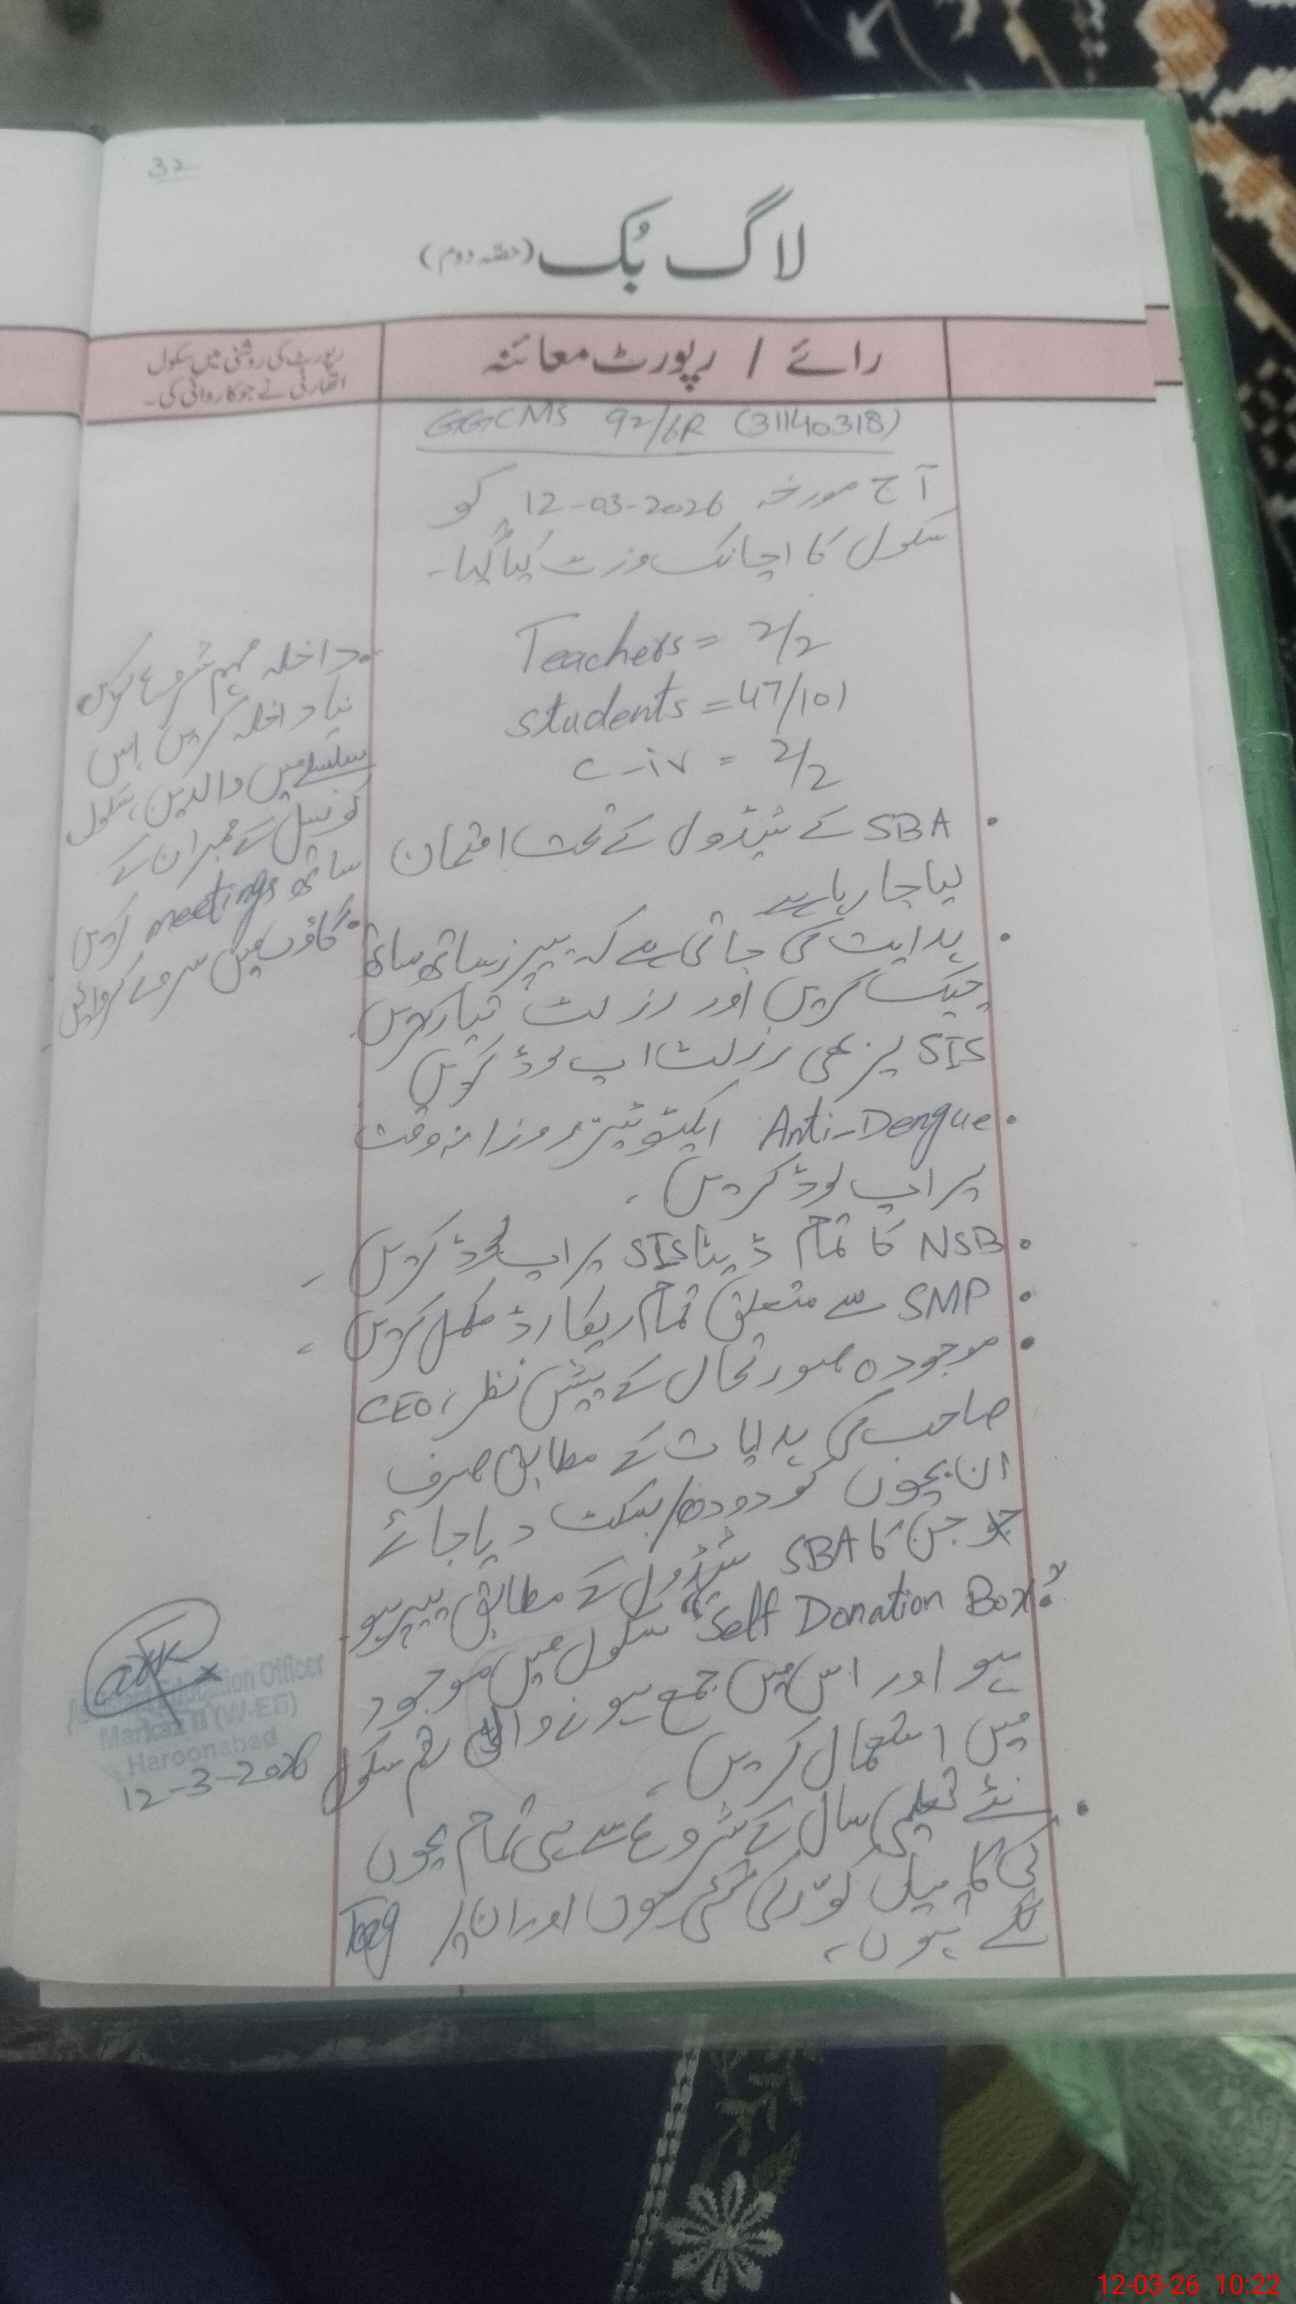 32
لاگ بُک (حصّہ دوم)
رائے / رپورٹ معائنہ
رپورٹ کی روشنی میں سکول
اتھارٹی نے جو کاروائی کی۔
GGCMS 92/6R (31140318)
آج مورخہ 12-03-2026 کو
سکول کا اچانک وزٹ کیا گیا۔
Teachers = 2/2
Students = 47/101
C-iv = 2/2
• SBA کے شیڈول کے تحت امتحان
لیا جا رہا ہے
• ہدایت کی جاتی ہے کہ پیپرز ساتھ ساتھ
چیک کریں اور رزلٹ تیار کریں
SIS پر بھی رزلٹ اپ لوڈ کریں
• Anti-Dengue ایکٹوٹیز روزانہ وقت
پر اپ لوڈ کریں۔
• NSB کا تمام ڈیٹا SIS پر اپ لوڈ کریں۔
• SMP سے متعلق تمام ریکارڈ مکمل کریں۔
• موجودہ صورتحال کے پیش نظر، CEO
صاحب کی ہدایات کے مطابق صرف
ان بچوں کو دودھ/بسکٹ دیا جائے
جن کا SBA شیڈول کے مطابق پیپر ہو۔
• "Self Donation Box" سکول میں موجود
ہو اور اس میں جمع ہونے والی رقم سکول
میں استعمال کریں۔
• نئے تعلیمی سال کے شروع سے ہی تمام بچوں
کی کاپیاں کور کی گئی ہوں اور ان پر Tag
لگے ہوں۔
• داخلہ مہم شروع کریں
نیا داخلہ کریں اس
سلسلے میں والدین، سکول
کونسل کے ممبران کے
ساتھ meetings کریں
• گاؤں میں سروے کروائیں۔
Education Officer
Markaz (W-EE)
Haroonabad
12-3-2026
12-03-26 10:22